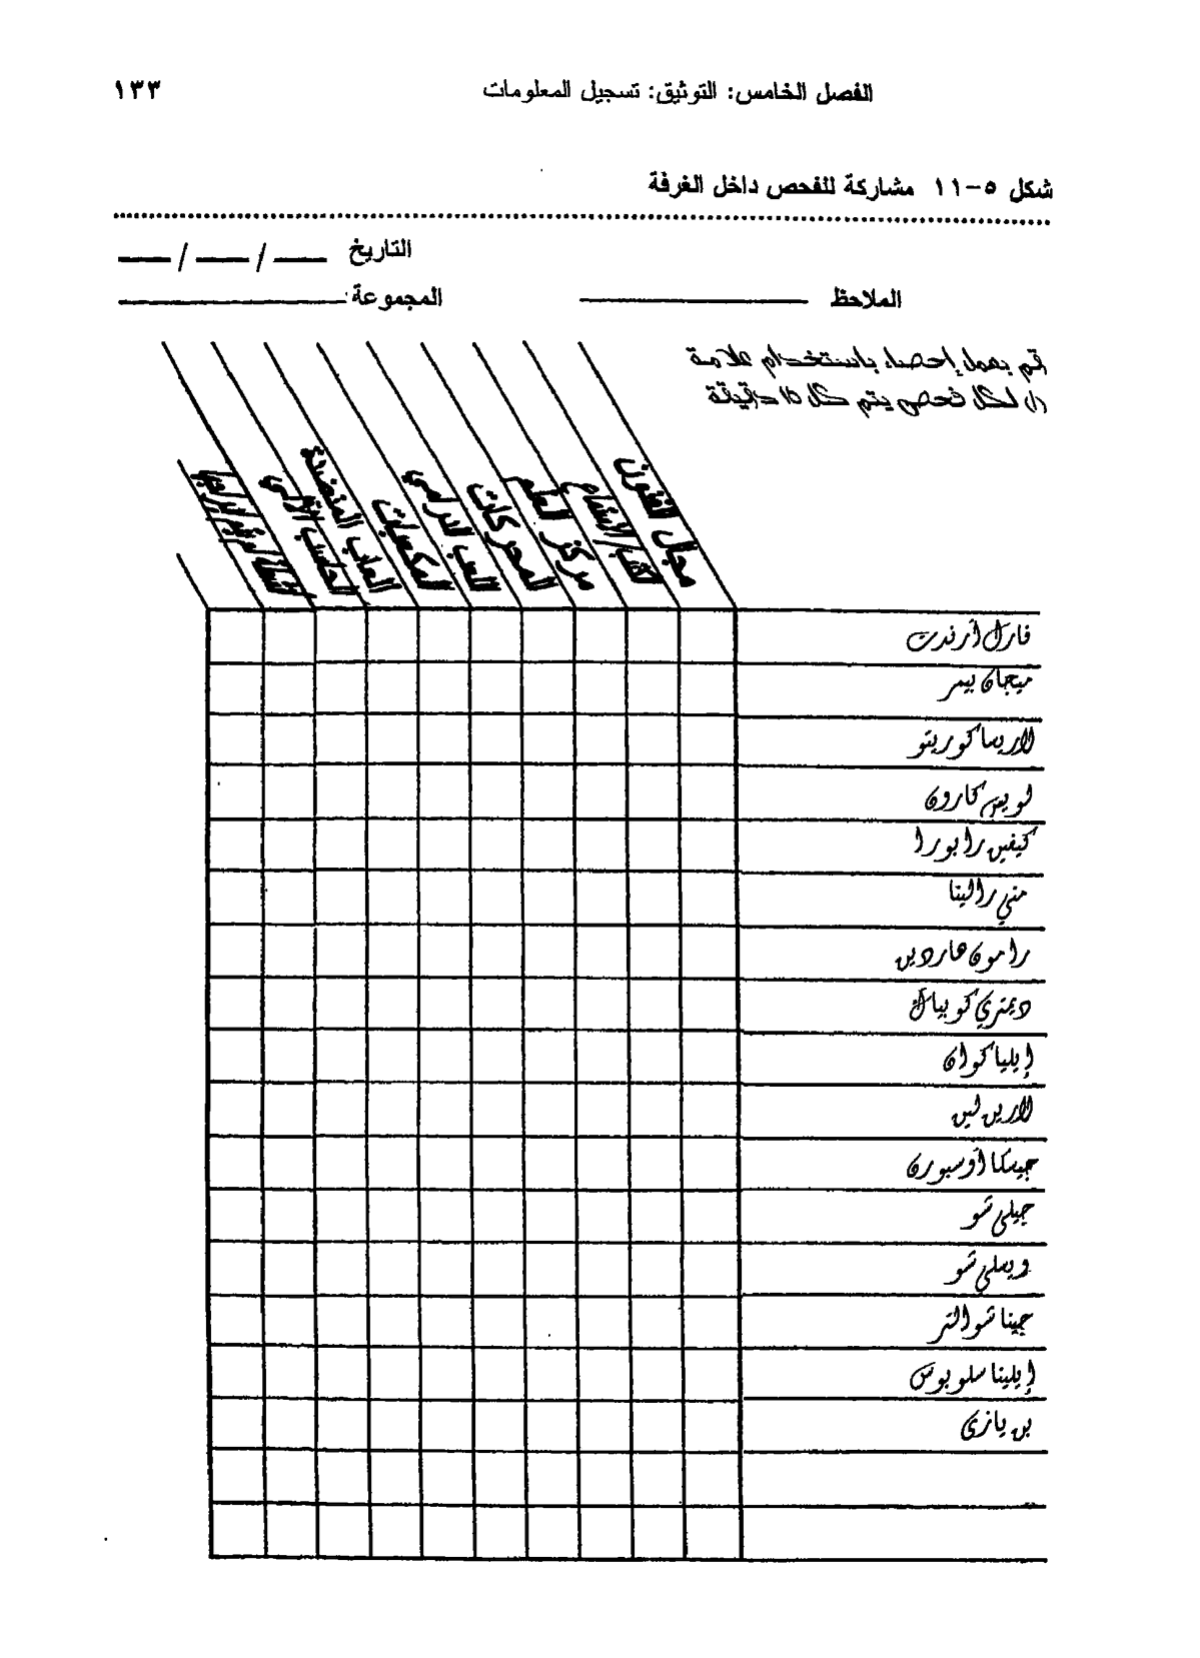 الفصل الخامس: التوثيق: تسجيل المعلومات ١٣٣
شكل ٥-١١ مشاركة للفحص داخل الغرفة
التاريخ __ / __ / __
الملاحظ ________ المجموعة: ________
قم بعمل إحصاء باستخدام علامة
(/) لكل فحص يتم كل ١٥ دقيقة
مجال الفنون
مركز العلم
المحركات
اللعب الدرامي
المكعبات
ألعاب المنضدة
الحاسب الآلي
فارل أرندت
ميجان بيمر
لاريسا كوريتو
لويس كارون
كيفين رابورا
مني رالينا
رامون هاردين
ديمتري كوبياك
إيليا كوان
لارين لين
جيسكا أوسبورن
جيلي شو
ويسلي شو
جينا شوالتر
إيلينا سلوبوس
بن يازي